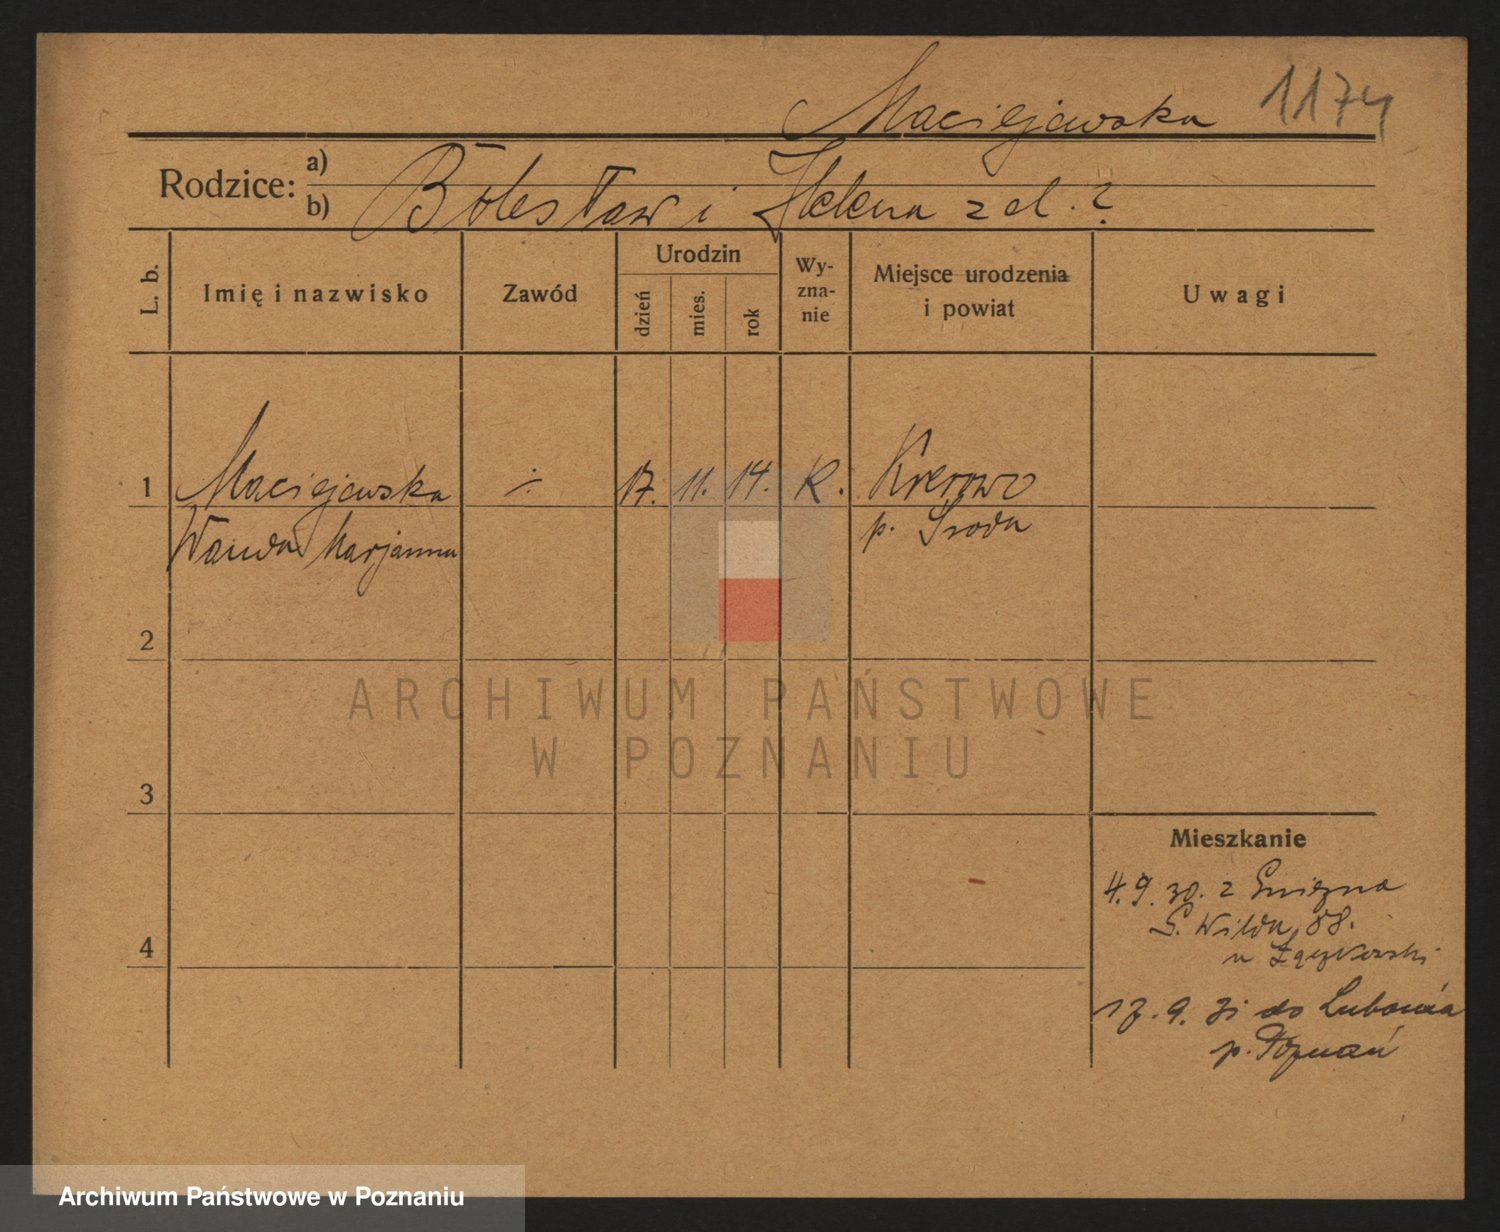 Maciejewska 1174
Rodzice: a)
b) Bolesław i Helena z d. ?
L. b.
Imię i nazwisko
Zawód
Urodzin
dzień
mies.
rok
Wy-
zna-
nie
Miejsce urodzenia
i powiat
Uwagi
1 Maciejewska ÷ 17. 11. 14. R. Krerowo
Wanda Marjanna p. Środa
2
3
4
Mieszkanie
4. 9. 30. z Gniezna
G. Wilda 88.
u
17. 9. 31 do Lubonia
p. Poznań
ARCHIWUM PAŃSTWOWE
W POZNANIU
Archiwum Państwowe w Poznaniu